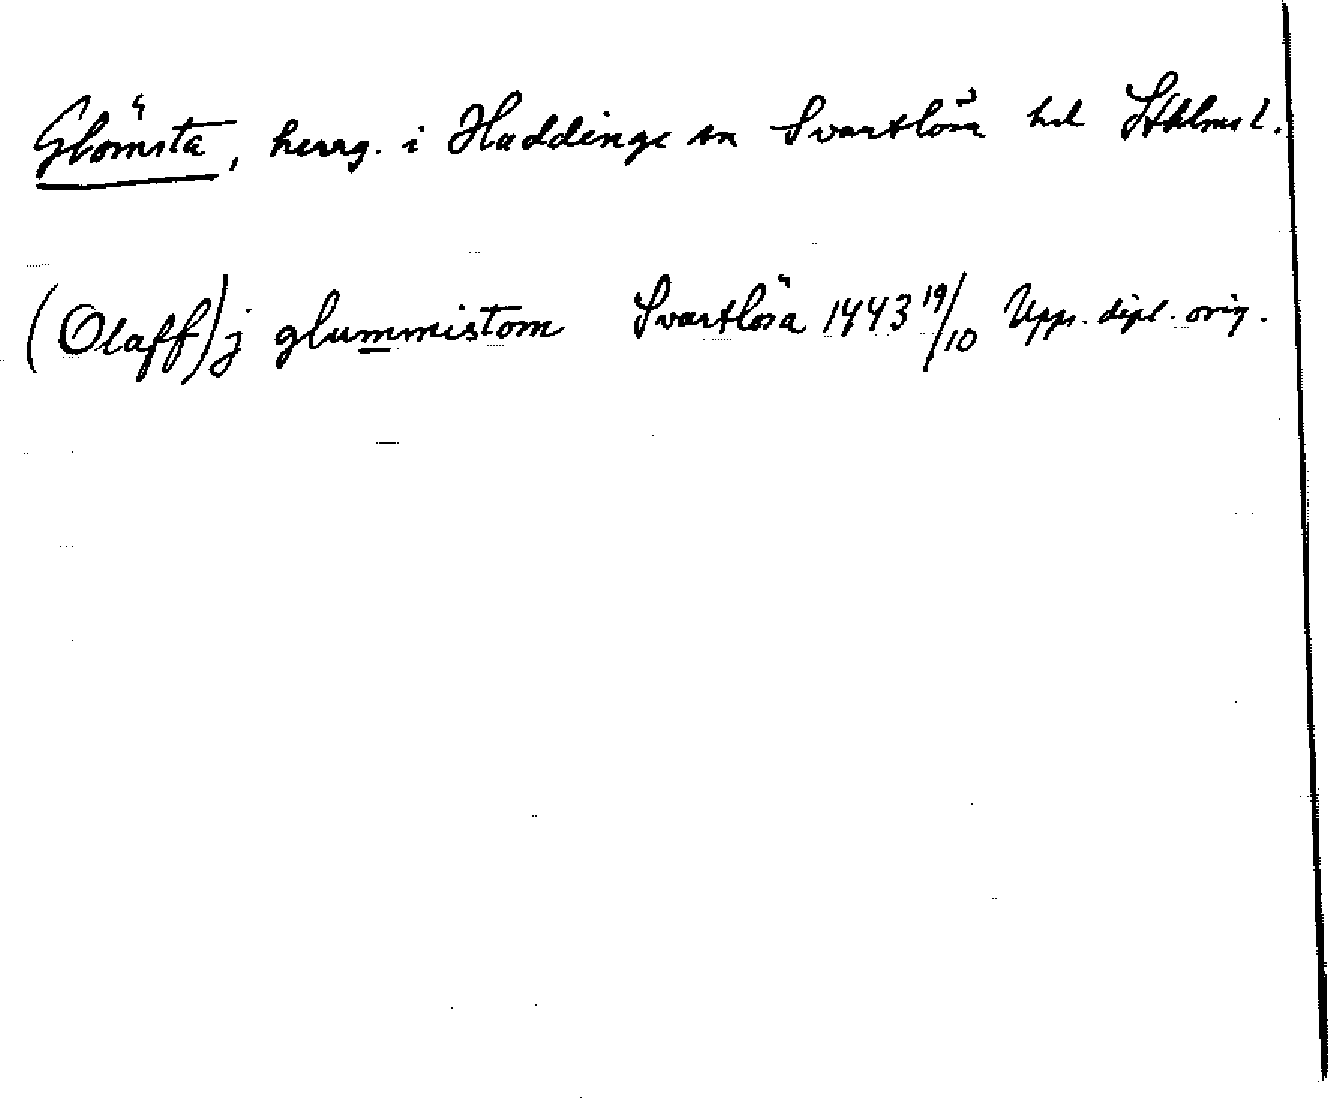 Glömsta, herrg. i Huddinge sn Svartlösa hd Sthlms l.
(Olaff) j glummistom Svartlösa 1443 19/10 Upps. dipl. orig.